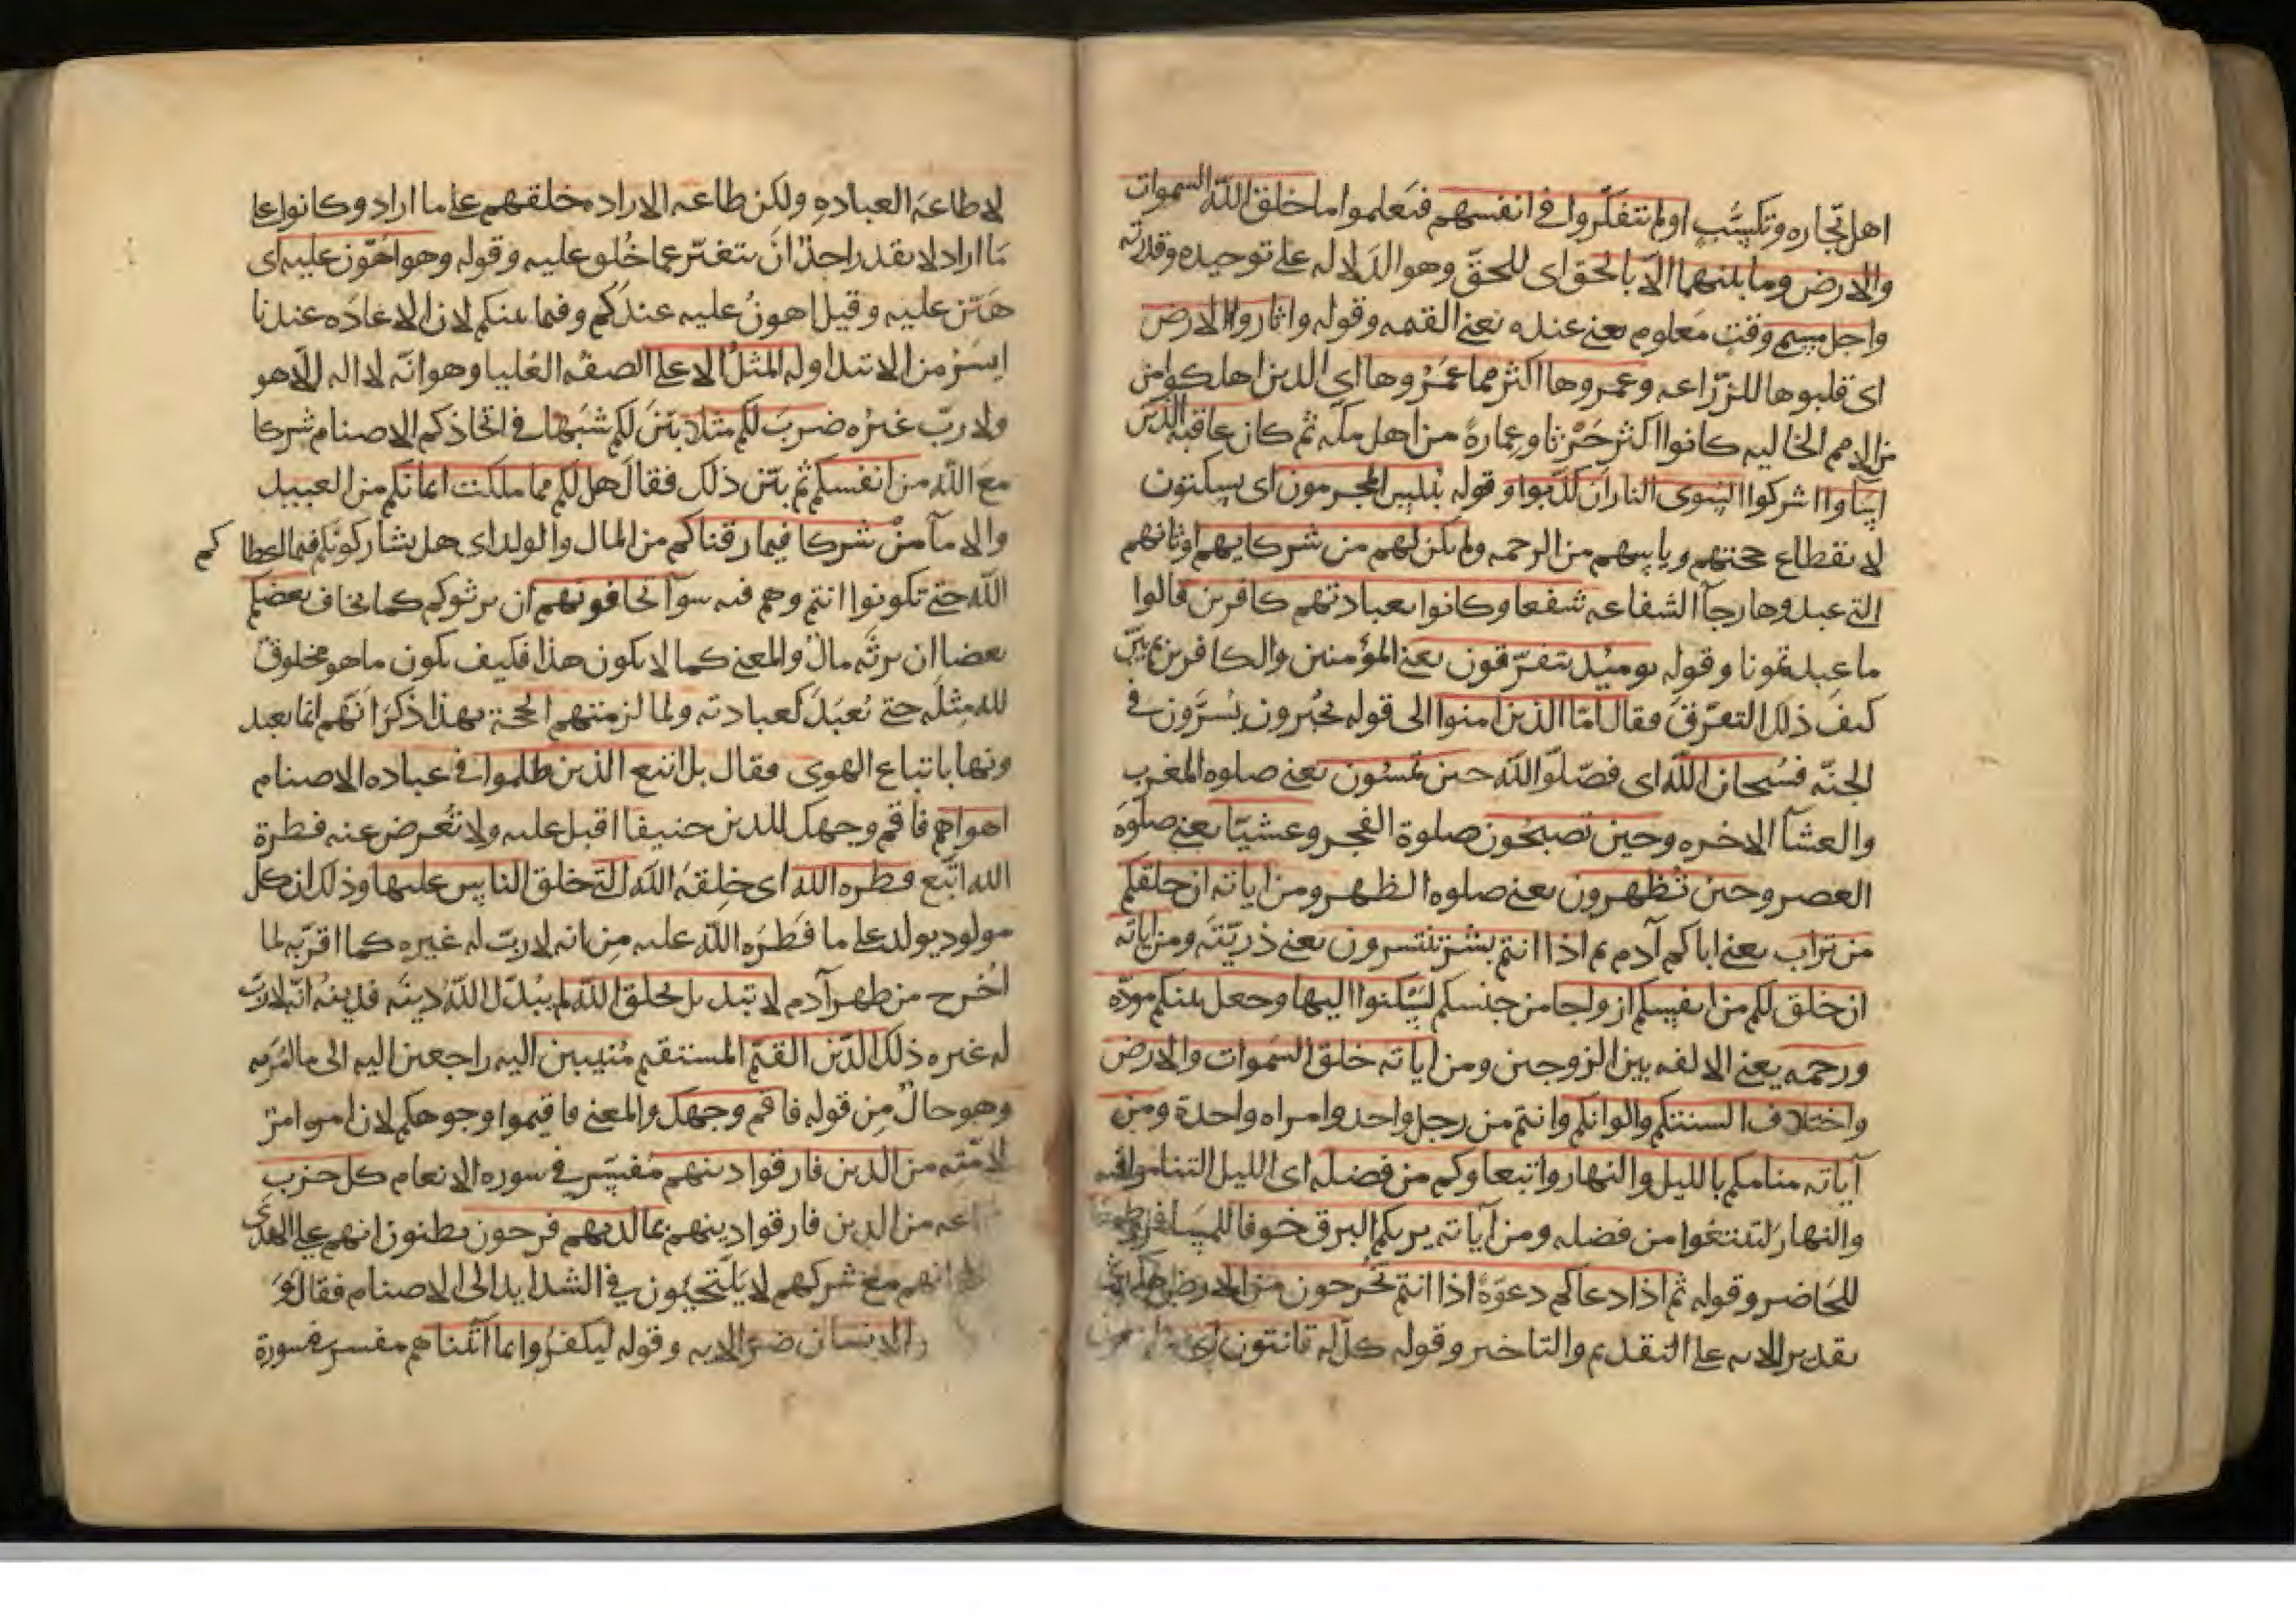 اهل تجاره وتكسّب اولم تتفكّروا في انفسهم فيعلموا ما خلق اللّه السموات
والارض وما بينهما الاّ بالحق اى للحقّ وهو الدلاله على توحيده وقدرته
واجل مسمى وقت معلوم يعنى عنده يعنى القيمه وقوله واثاروا الارض
اى قلبوها للزّراعه وعمروها اكثر مما عَمَرُوها اى الذين اهلكوا من
من الامم الخاليه كانوا اكثر حَرْثا وعمارةً من اهل مكه ثم كان عاقبة الذين
اساوا اشركوا السّوى النار ان كذّبوا وقوله يُبْلِس المجرمون اى يسكتون
لانقطاع حجتهم وياسهم من الرحمه ولم يكن لهم من شركايهم اوثانهم
التى عبدوها رجآ الشفاعه شفعا وكانوا بعبادتهم كافرين قالوا
ما عبدتمونا وقوله يوميذ يتفرّقون يعنى المؤمنين والكافرين ثم بيّن
كيف ذلك التفرّق فقال امّا الذين امنوا الى قوله يُحْبَرون يُسَرّون فى
الجنّه فسُبحان اللّه اى فصَلّوا للّه حين تمسُون يعنى صلوه المغرب
والعشآ الاخره وحين تصبحُون صلوة الفجر وعشيّا يعنى صلوة
العصر وحين تُظهرون يعنى صلوه الظهر ومن اياته ان خلقكم
من تراب يعنى اباكم آدم ثم اذا انتم بشر تنتشرون يعنى ذريّته ومن اياته
ان خلق لكم من انفسكم ازواجا من جنسكم لتسْكنوا اليها وجعل بينكم مودّه
ورحمه يعنى الالفه بين الزوجين ومن اياته خلق السموات والارض
واختلاف السنتكم والوانكم وانتم من رجل واحد وامراه واحدة ومن
آياته منامكم بالليل والنهار وابتغاوكم من فضله اى الليل لتناموا فيه
والنهار لتبتغوا من فضله ومن آياته يريكم البرق خوفا للمسافر وطمعا
للحَاضر وقوله ثم اذا دعاكم دعوَةً اذا انتم تخرجون من الارض هكذى
تقدير الايه على التقديم والتاخير وقوله كلّ له قانتون اى
لا طاعة العباده ولكن طاعه الاراده خلقهم على ما اراد وكانوا على
مَا اراد لا يقدر احدٌ انَ يتغيّر عما خُلق عليه وقوله وهو اهْوَن عليه اى
هَيّن عليه وقيل اهونُ عليه عندَكم وفيما بينكم لان الاعَادَه عندنا
ايسَرُ من الابتدا وله المثلُ الاعلى الصفه العُليا وهو انّه لا اله الاّ هو
ولا ربّ غيرُه ضربَ لكم مثلا بيّنَ لكم شبَها فى اتخاذكم الاصنام شركا
مع اللّه من انفسكم ثم بيّن ذلك فقال هل لكم مما ملكت ايمانكم من العبيد
والامآ منْ شركا فيما رزقناكم من المال والولد اى هل يشاركونكم فيما اعطاكم
اللّه حتى تكونوا انتم وهم فيه سوآ تخافونهم ان يرثوكم كما يخاف بعضكم
بعضا ان يرثَه مالَه والمعنى كما لا يكون هذا فكيف يكون ما هو مخلوقٌ
للّه مِثلَه حتى يُعبَدَ كعبادته ولما لزمتهم الحجة بهذا ذكَرَ انّهم انما يعبد
ونها باتباع الهوى فقال بل اتبع الذين ظلموا فى عباده الاصنام
اهواهم فاقم وجهك للدين حنيفا اقبل عليه ولا تُعْرض عنه فطرة
اللّه اتّبع فطره اللّه اى خِلقةَ اللّه الّتى خلق الناس عليها وذلك ان كل
مولود يولد على ما فَطَرَه اللّه عليه مِن انه لا ربّ له غيره كما اقرّ به لما
اُخرج من ظهر آدم لا تبديل لخلق اللّه لم يُبَدّل اللّهُ دينَه فدينُه انّه لا ربّ
له غيره ذلك الدّين القيّم المستقيم مُنيبين اليه راجعين اليه الى ما امَرَ به
وهو حالٌ مِن قوله فاقم وجهك والمعنى فاقيموا وجوهكم لان امره امرٌ
لامّته من الذين فارقوا دينهم مُفسّر فى سوره الانعام كل حزب
من الذين فارقوا دينهم بما لديهم فرحون يظنون انهم على الهدى
انهم مع شركهم لا يَلتجئون فى الشدايد الى الاصنام فقال وَ
الانسان ضر الايه وقوله ليكفُروا بما اتيناهم مفسر فى سورة